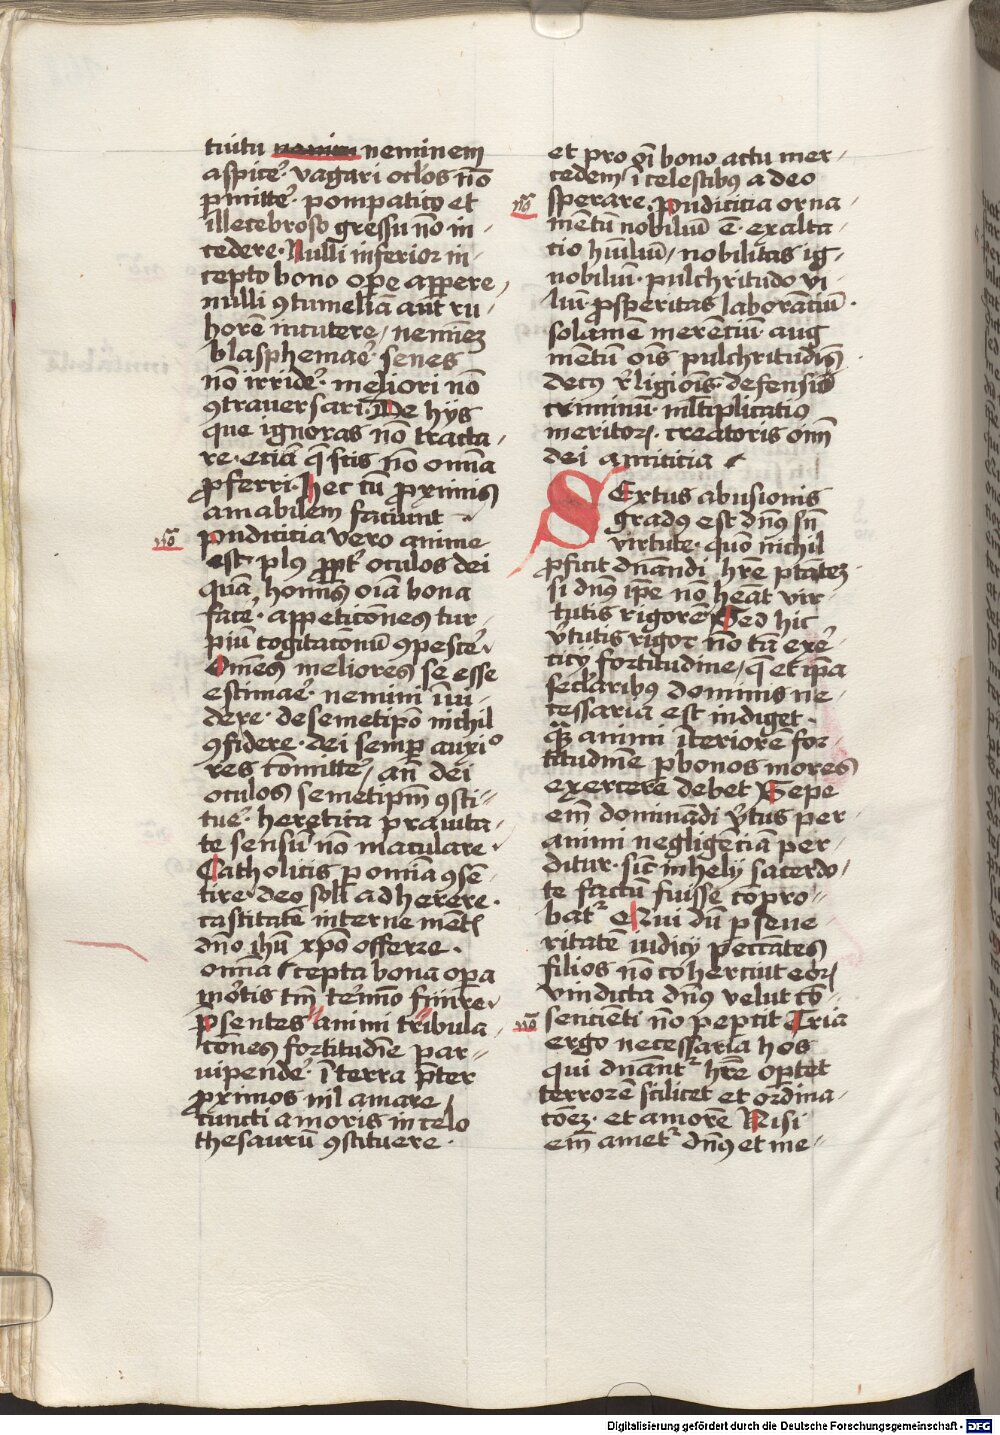 tuitu neminem
aspice᷒ · vagari oc̄los nō
p̄mitte᷒ · pompatico et
illecebroso gressu nō in-
cedere · Nulli inferior in
cepto bono oꝑe appere,
nulli ꝯtumeliā aūt ru-
borē incutere, neminez
blasphemae᷒ · senes
nō irride᷒ · meliori nō
ꝯtrauersari · De hijs
que ignoras nō tracta-
re · etiā q̄ scis nō omnia
ꝓferri · hec tn̄ ꝓximis
amabilem faciunt
no̅
pudicitia vero anime
est · plus ꝓpt᷒ oculos dei
quā hoīnis oīa bona
face᷒ · appetic̄ones tur-
piū cogitac̄onū ꝯpesce᷒ ·
Om̄es meliores se esse
estimae᷒ · nemini īui-
dere · de semetip̄o nichil
ꝯfidere · dei semꝑ auxio
res c̄omitte᷒, an̄ dei
oculos semetip̄m ꝯsti-
tue᷒ · heretica prauita-
te sensū nō maculare ·
Catholicis p omīa ꝯsē-
tire · deo soli adherere ·
castitatē interne mēt
dn̄o ihū xp̄o offerre ·
omīa cepta bona oꝑa
mortis tm̄ t᷒mno finire ·
p̄sentes animi tribula-
c̄ones fortitudīe par-
uipende᷒ · ī terra p̄ter
ꝓximos nil amare,
cuncti amoris in celo
thesaurū ꝯstituere ·
et pro oī bono actu mer-
cedem ī celestibꝯ a deo
no̅
sperare · Pudicitia orna-
mētū nobiliū ē · exalta-
cio hūiliū, nobilitas ig-
nobiliū · pulchritudo vi-
liū · ꝓsperitas laborāciū ·
solamē merēciū · aug
mētū oīs pulchritudīs ·
decꝯ r᷒ligiois · defensio
criminū · ml̄tiplicatio
meritoꝝ · creatoris oīm
dei amicitia ·
Sextus abusionis
gradꝯ est dn̄s sn̄
virtute · quō nichil
ꝓficit dn̄andi hr̄e ptātez
si dn̄s ip̄e no heāt vir-
tutis rigorē · Sed hic
v᷒tutis rigor nō tā exe᷒-
ticij fortitudine, q̄ et ip̄a
sec̄laribꝯ dominis ne-
cessaria est indiget ·
qȝ animi īteriorē for-
titudinē ꝑ bonos mores
exercere debet · Sepe
em̄ dominādi v᷒tus per
animi negligēciā per-
ditur · sic̄ in hely sacerdo-
te factū fuisse c̄opro-
bat᷒ · Qui dū pseue
ritatē iudicij peccātes
filios nō cohercuit eoꝝ
vindicta dn̄s velut cō
no̅
sencienti nō pepcit · Tria
ergo necessaria hos
qui dn̄ant᷒ hr̄e oportet
terrorē scilicet et ordina-
c̄oēz · et amorē · Nisi
em̄ amet᷒ dn̄s et me-
Digitalisierung gefördert durch die Deutsche Forschungsgemeinschaft - DFG